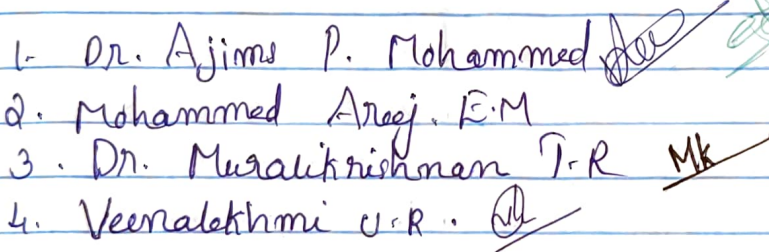 1- Dr. Ajims P. Mohammed
2. Mohammed Areej. E.M
3. Dr. Muralikrishnan T.R MK
4. Veenalekhmi U.R.